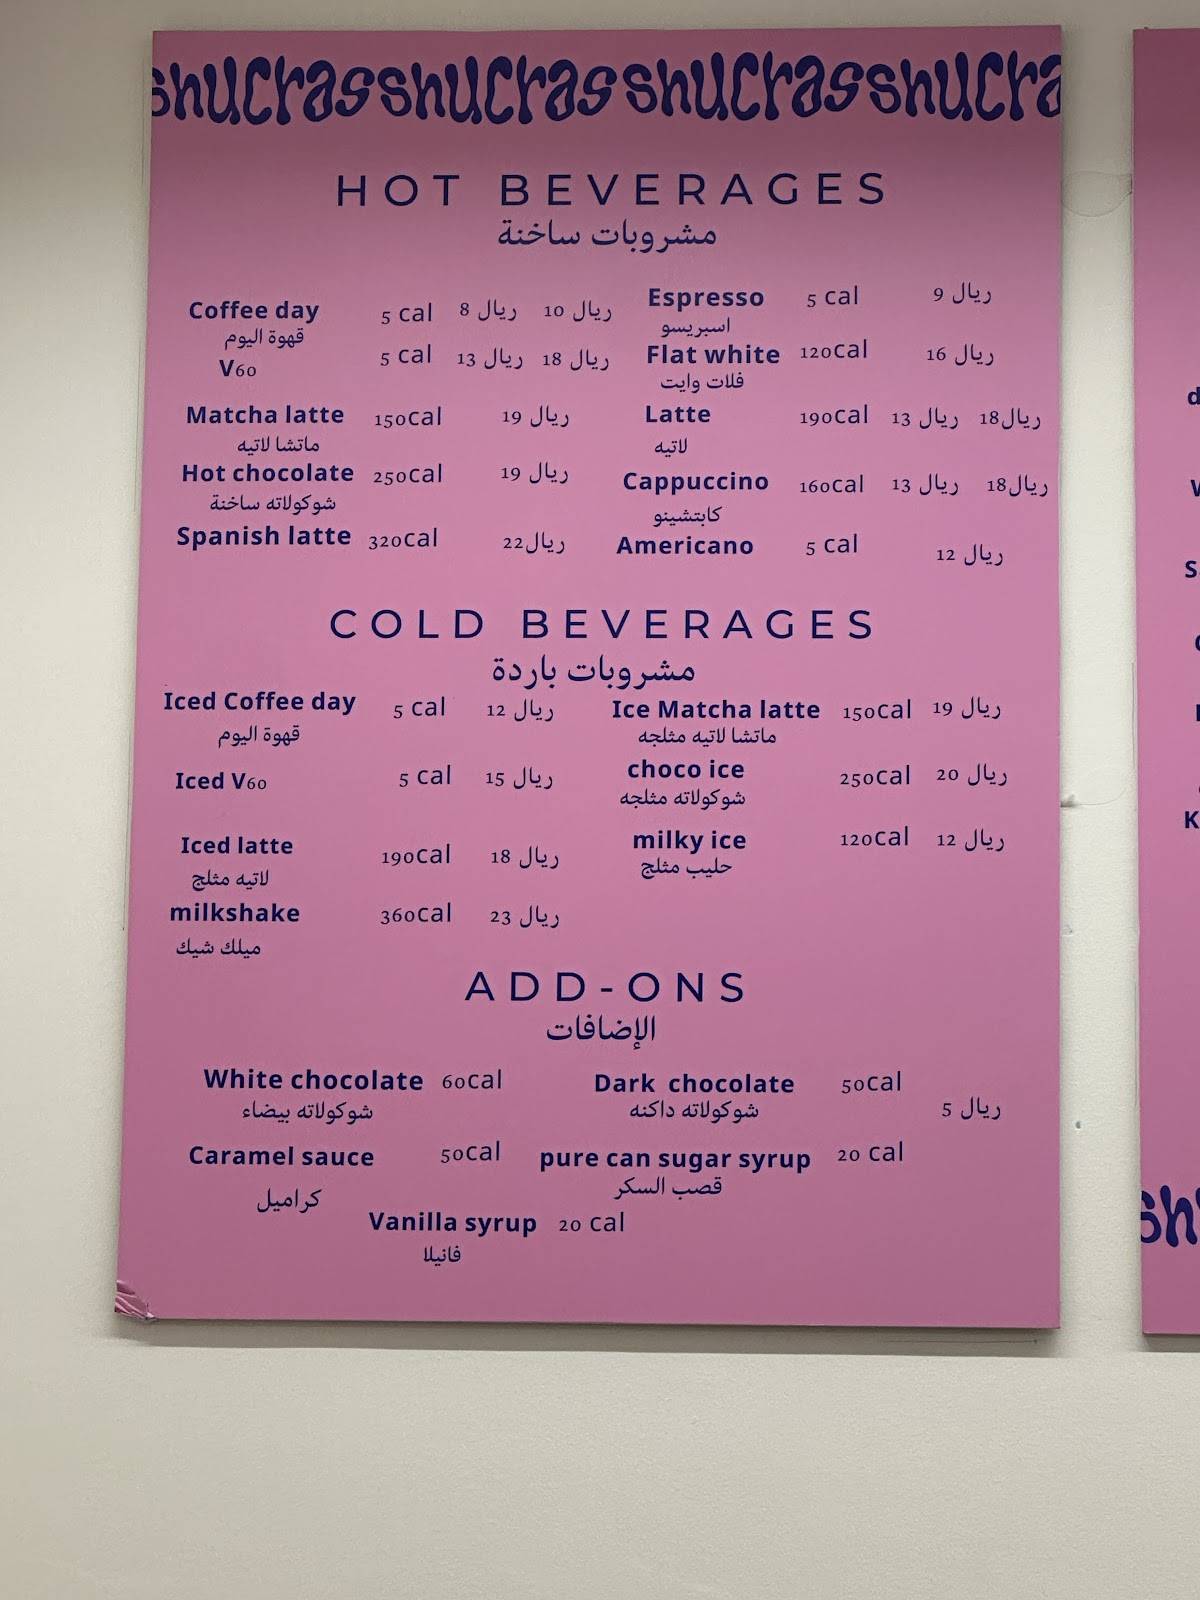 shucrasshucrasshucrasshucra
HOT BEVERAGES
مشروبات ساخنة
Coffee day 5 cal 8 ريال 10 ريال
قهوة اليوم
V60 5 cal 13 ريال 18 ريال
Matcha latte 150cal 19 ريال
ماتشا لاتيه
Hot chocolate 250cal 19 ريال
شوكولاته ساخنة
Spanish latte 320cal 22ريال
Espresso 5 cal 9 ريال
اسبريسو
Flat white 120cal 16 ريال
فلات وايت
Latte 190cal 13 ريال 18ريال
لاتيه
Cappuccino 160cal 13 ريال 18ريال
كابتشينو
Americano 5 cal 12 ريال
COLD BEVERAGES
مشروبات باردة
Iced Coffee day 5 cal 12 ريال
قهوة اليوم
Iced V60 5 cal 15 ريال
Iced latte 190cal 18 ريال
لاتيه مثلج
milkshake 360cal 23 ريال
ميلك شيك
Ice Matcha latte 150cal 19 ريال
ماتشا لاتيه مثلجه
choco ice 250cal 20 ريال
شوكولاته مثلجه
milky ice 120cal 12 ريال
حليب مثلج
ADD-ONS
الإضافات
White chocolate 60cal
شوكولاته بيضاء
Dark chocolate 50cal
شوكولاته داكنه
5 ريال
Caramel sauce 50cal
كراميل
pure can sugar syrup 20 cal
قصب السكر
Vanilla syrup 20 cal
فانيلا
d
S
K
sh